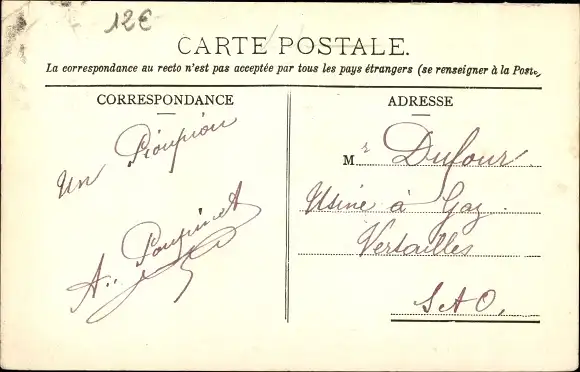 12€
CARTE POSTALE.
La correspondance au recto n'est pas acceptée par tous les pays étrangers (se renseigner à la Poste)
CORRESPONDANCE
ADRESSE
Un Pioupiou
A. Poupinet
Mr Dufour
Usine à Gaz
Versailles
S et O,